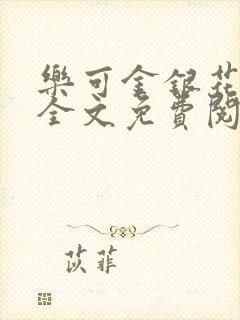 樂可金銀花
全文免費閱
苡菲